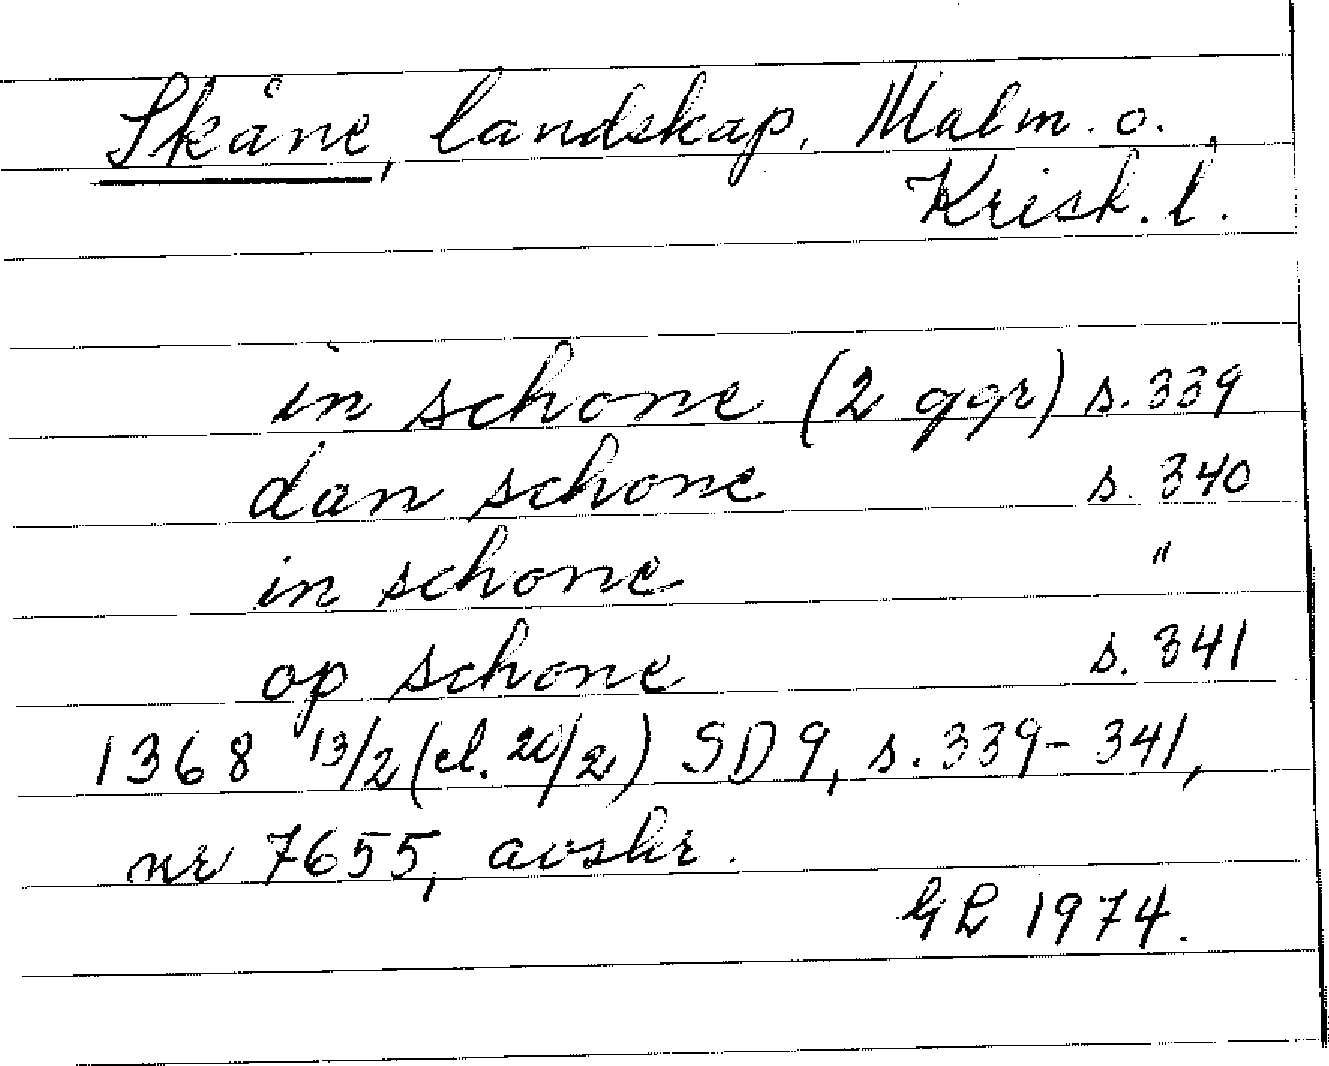 Skåne, landskap. Malm. o.
Krist. l.
in schone (2 ggr) s. 339
dan schone s. 340
in schone "
op schone s. 341
1368 13/2 (el. 20/2) SD 9, s. 339-341,
nr 7655, avskr.
GL 1974.